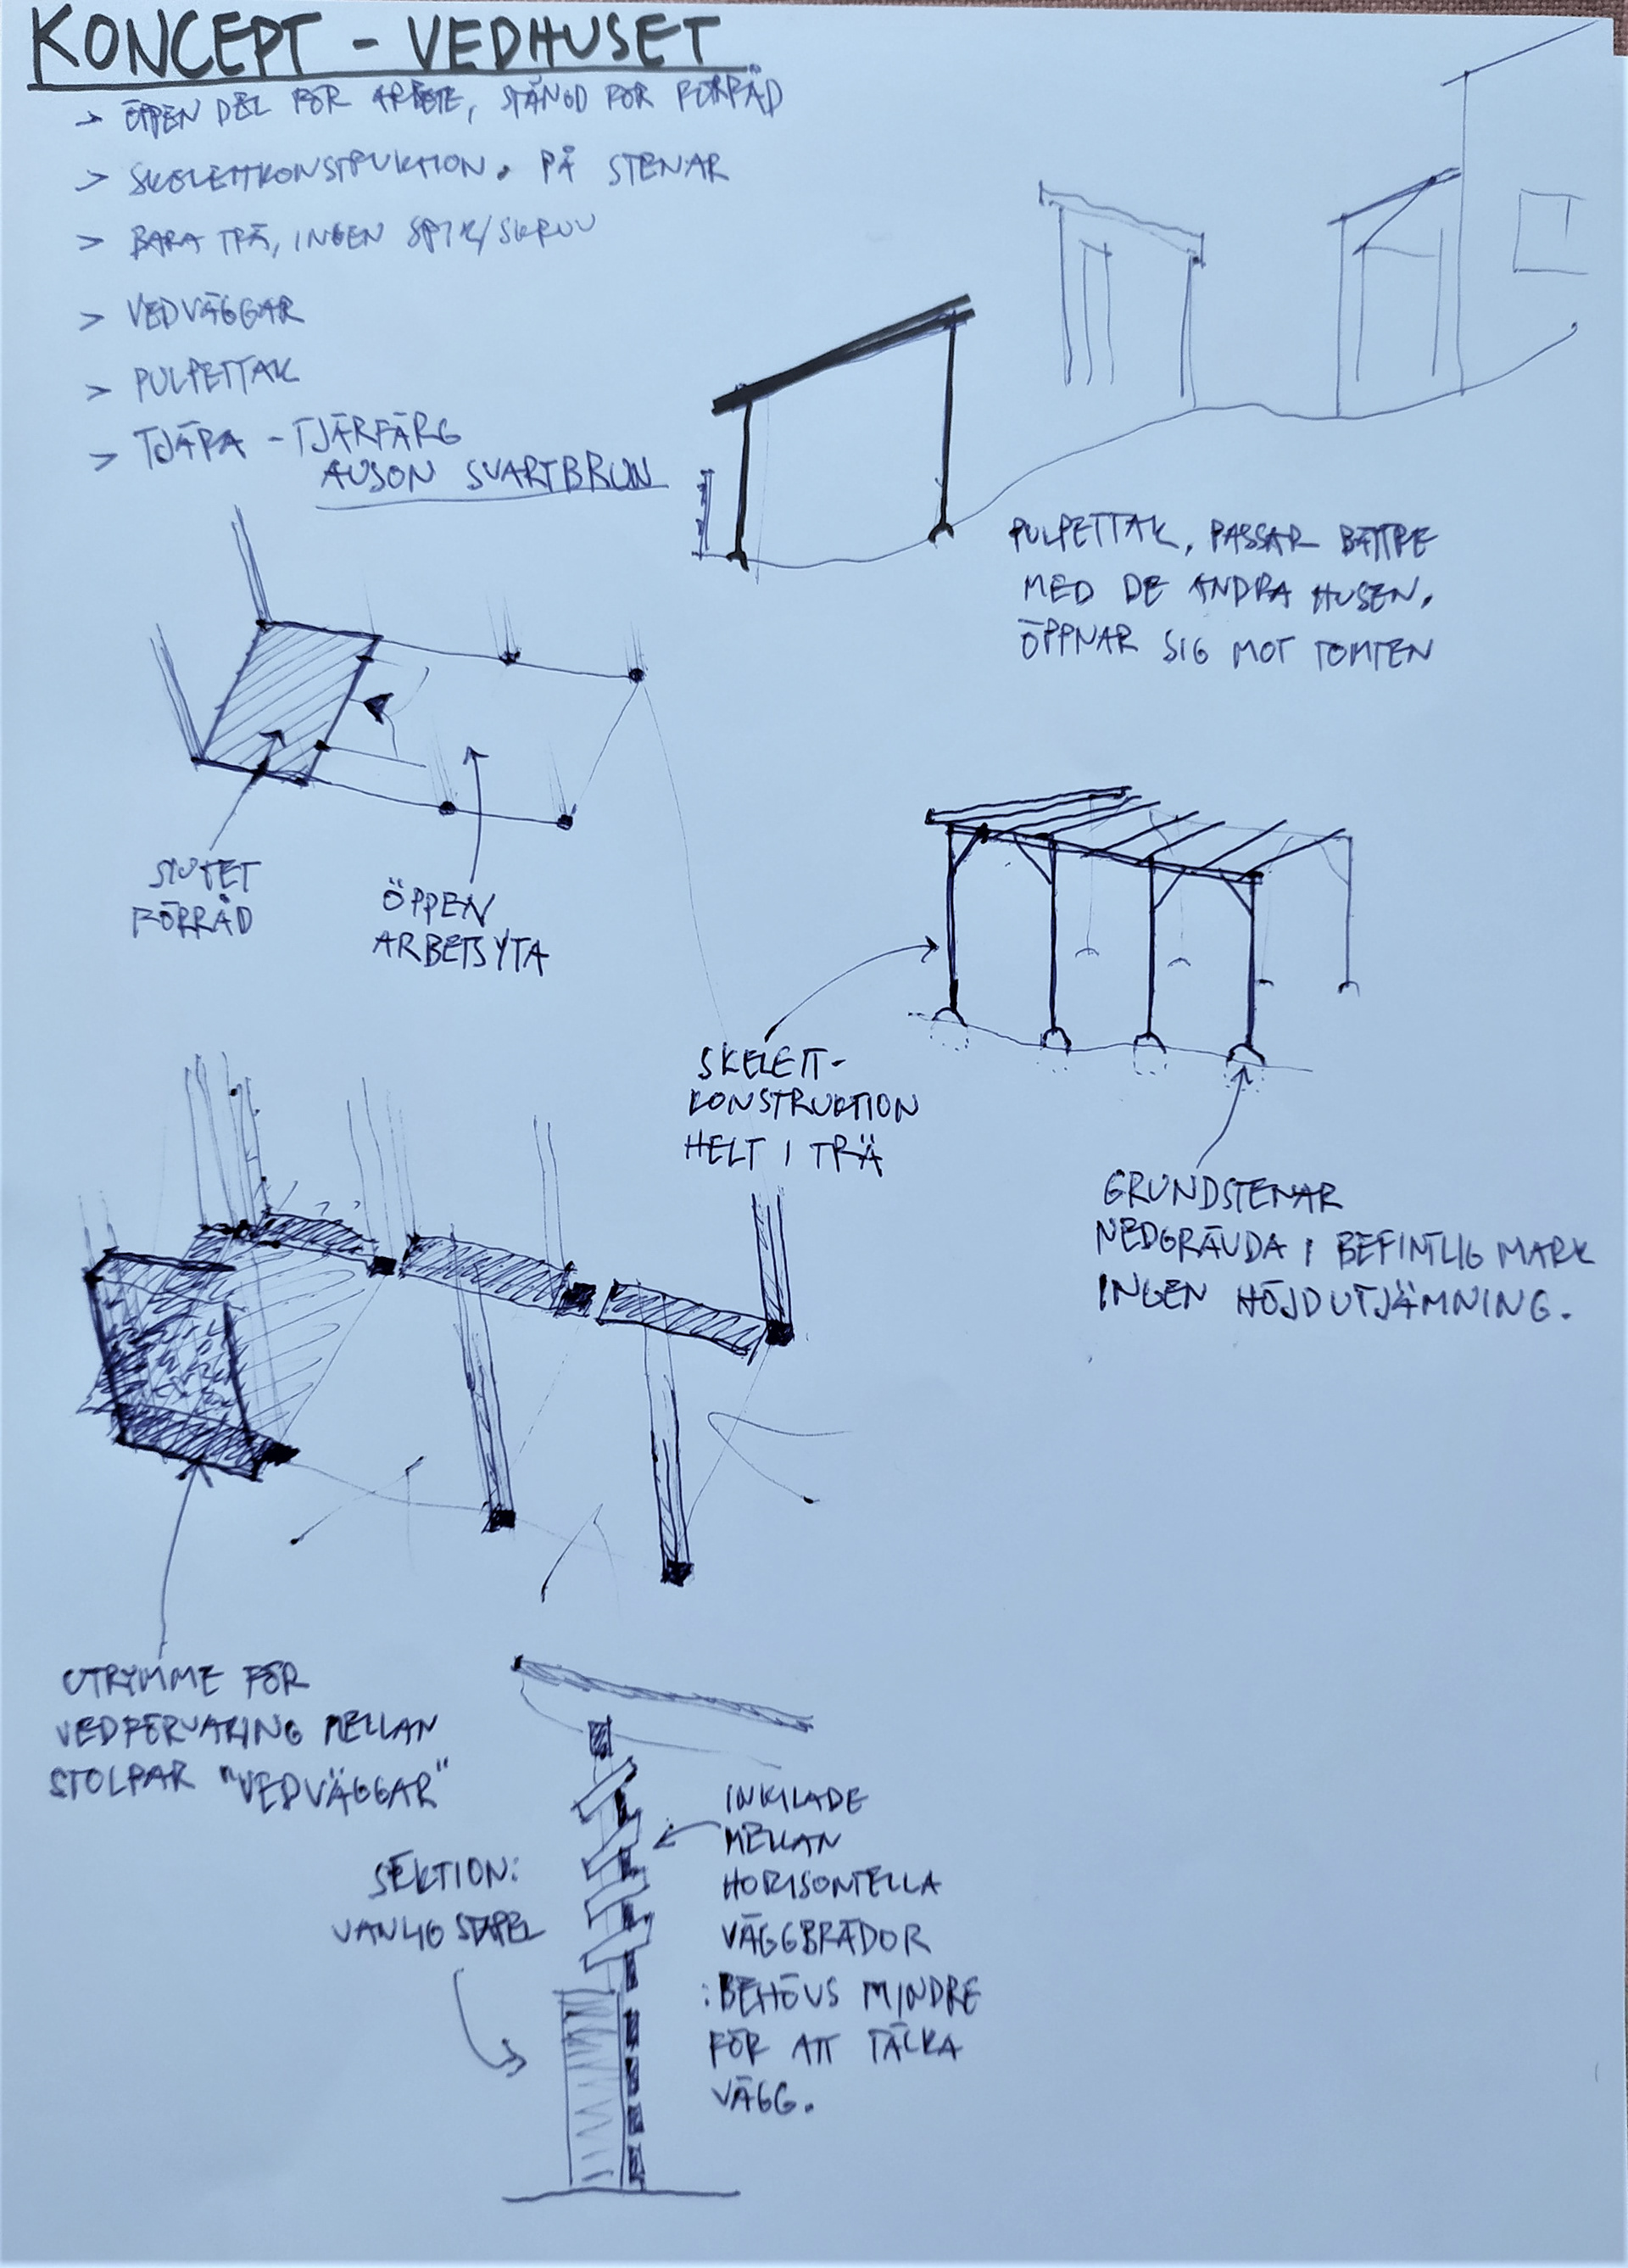 KONCEPT - VEDHUSET
> ÖPPEN DEL FÖR ARBETE, STÄNGD FÖR FÖRRÅD
> SKELETTKONSTRUKTION. PÅ STENAR
> BARA TRÄ, INGEN SPIK/SKRUV
> VEDVÄGGAR
> PULPETTAK
> TJÄRA - TJÄRFÄRG
AUSON SVARTBRUN
PULPETTAK, PASSAR BÄTTRE
MED DE ANDRA HUSEN.
ÖPPNAR SIG MOT TOMTEN
SLUTET
FÖRRÅD
ÖPPEN
ARBETSYTA
SKELETT-
KONSTRUKTION
HELT I TRÄ
GRUNDSTENAR
NEDGRÄVDA I BEFINTLIG MARK
INGEN HÖJDUTJÄMNING.
UTRYMME FÖR
VEDFÖRVARING MELLAN
STOLPAR "VEDVÄGGAR"
SEKTION:
VANLIG STAPEL
INKILADE
MELLAN
HORISONTELLA
VÄGGBRÄDOR
: BEHÖVS MINDRE
FÖR ATT TÄCKA
VÄGG.